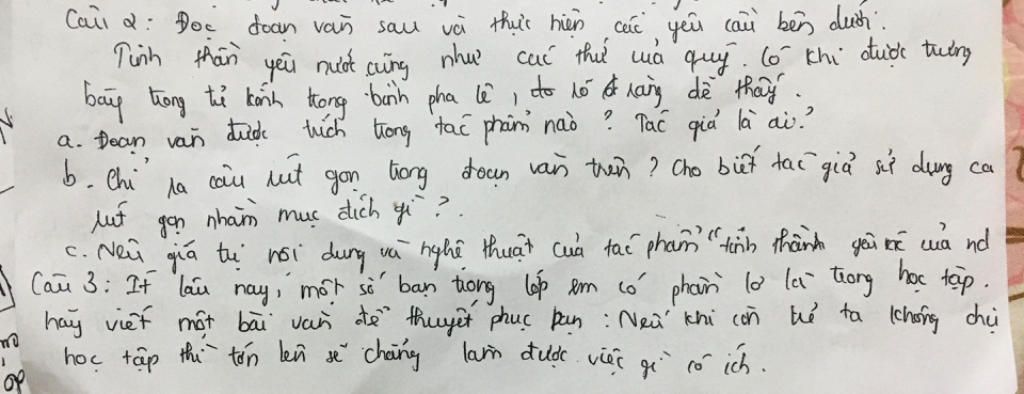 Câu 2: Đọc đoạn văn sau và thực hiện các yêu cầu bên dưới.
Tinh thần yêu nước cũng như các thứ của quý. Có khi được trưng
bày trong tủ kính trong bình pha lê, rõ ràng dễ thấy.
a. Đoạn văn được trích trong tác phẩm nào? Tác giả là ai?
b. Chỉ ra câu rút gọn trong đoạn văn trên? Cho biết tác giả sử dụng câ
rút gọn nhằm mục đích gì?.
c. Nêu giá trị nội dung và nghệ thuật của tác phẩm "tinh thành yêu nc của nd
Câu 3: Ít lâu nay, một số bạn trong lớp em có phần lơ là trong học tập.
hãy viết một bài văn để thuyết phục bạn: Nếu khi còn trẻ ta không chịu
học tập thì lớn lên sẽ chẳng làm được việc gì có ích.